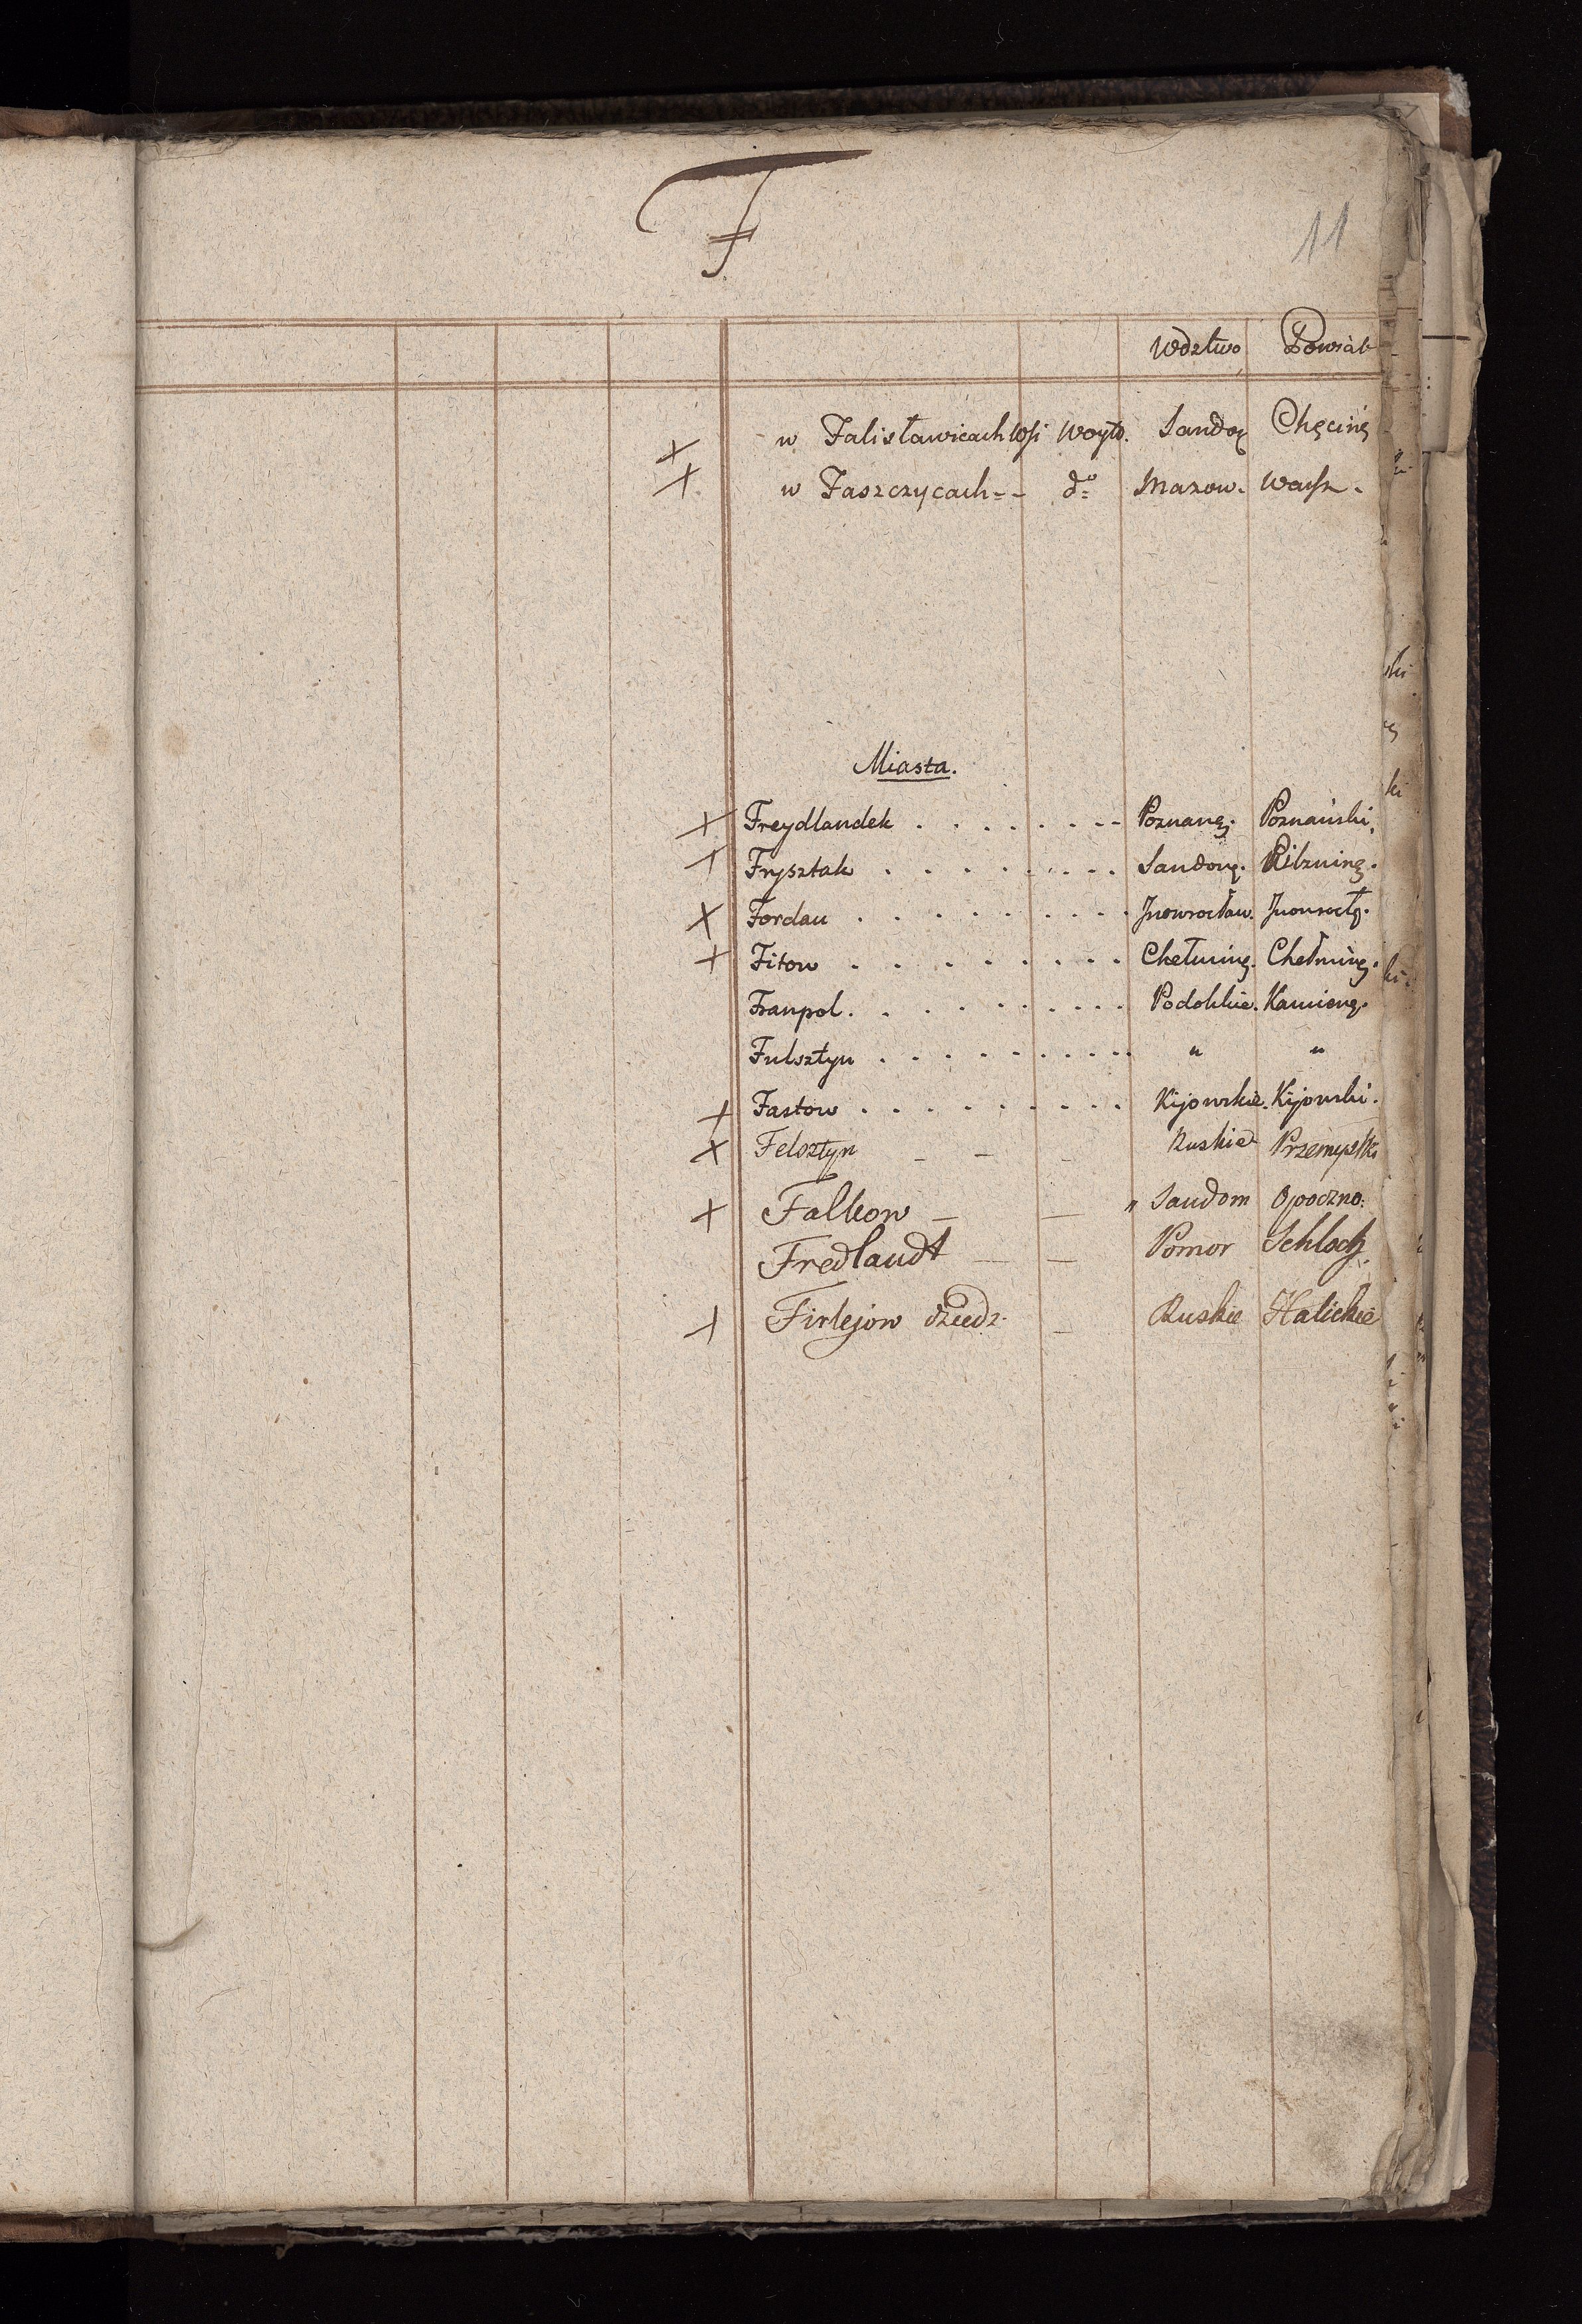 F
11
Wdztwo Powiat
w Falisławicach Wsi Woyto. Sandoz Chęcinę
w Faszczycach d° Mazow. Warsz.
Miasta.
Freydlandek Poznanę. Poznański
Frysztak Sandomę. Pilzninę.
Fordau Jnowrocław. Jnowrocłę.
Fitow Chełminę. Chełminę.
Franpol. Podolskie. Kamienę.
Fulsztyn " "
Fastow Kijowskie. Kijowski.
Felsztyn Ruskie Przemyslki
Falkow " Sandom Opoczno:
Fredlandt Pomor Schloch.
Firlejow dziedz. Ruskie Halickie